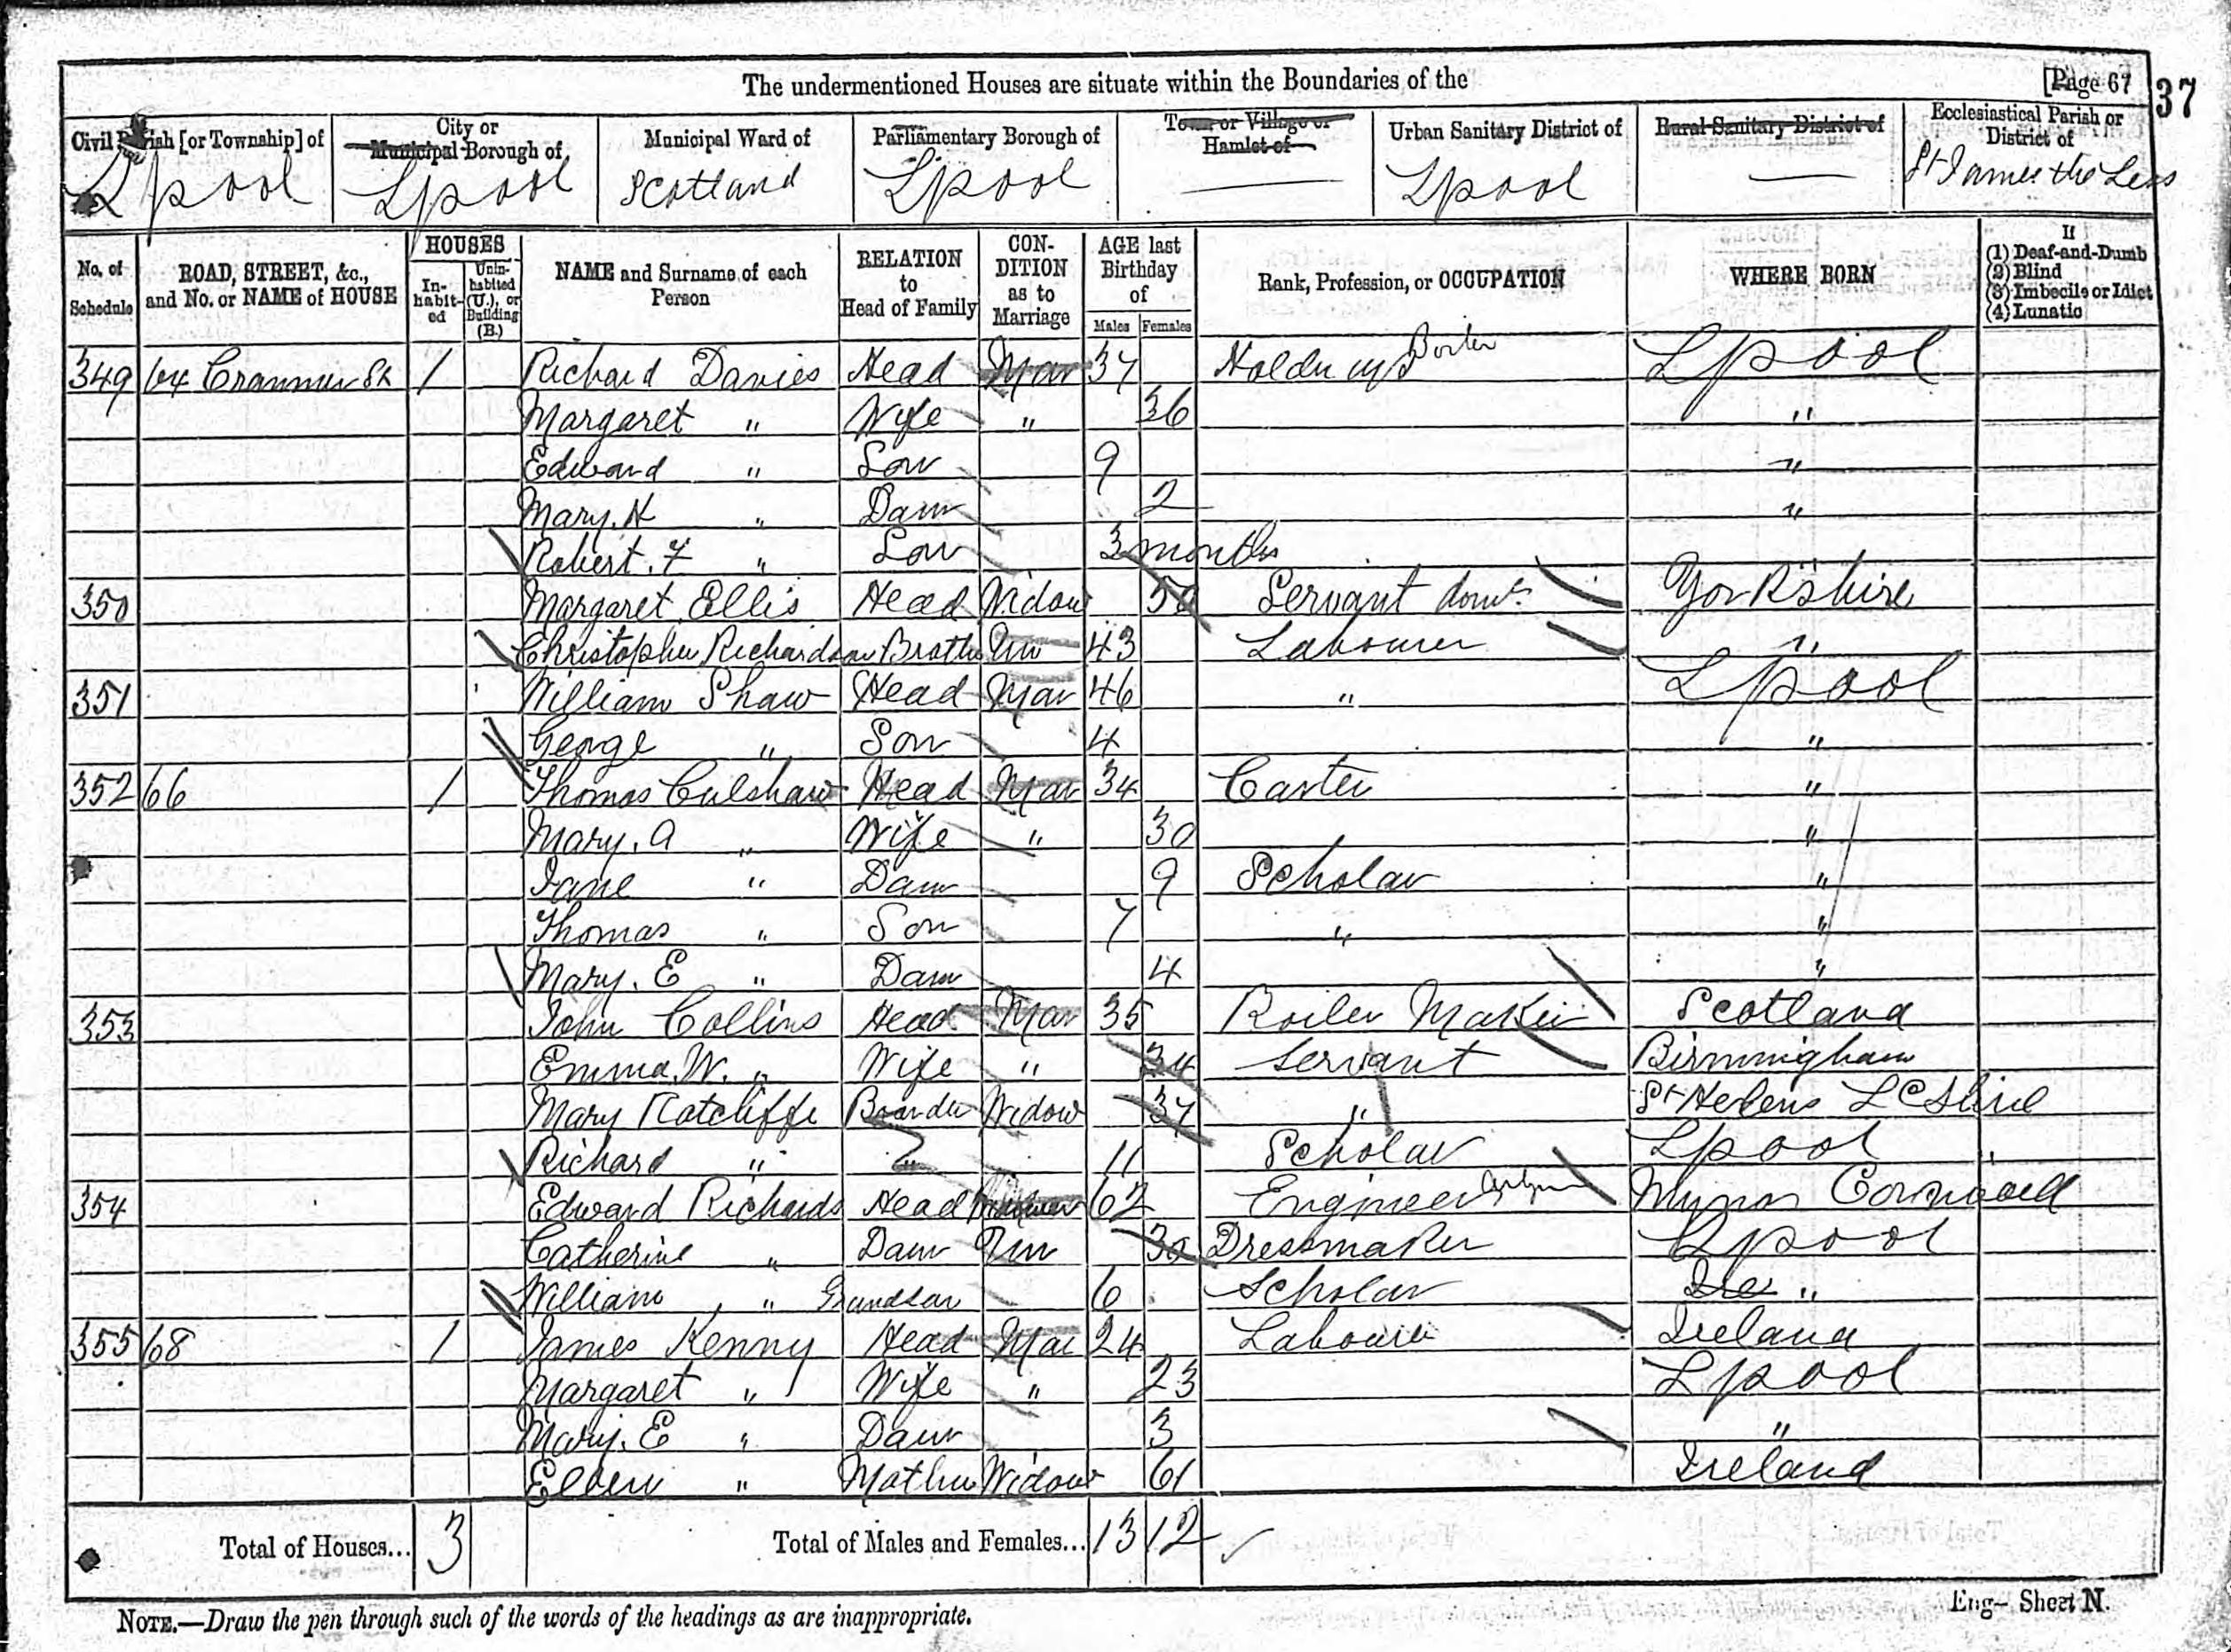 The undermentioned Houses are situate within the Boundaries of the
[Page 67
37
Civil Parish [or Township] of
City or Municipal Borough of
Municipal Ward of
Parliamentary Borough of
Town or Village or Hamlet of
Urban Sanitary District of
Rural Sanitary District of
Ecclesiastical Parish or District of
Lpool Lpool Scotland Lpool — Lpool — St James the Less
No. of Schedule
ROAD, STREET, &c., and No. or NAME of HOUSE
HOUSES
In-habit-ed
Unin-habited (U.), or Building (B.)
NAME and Surname of each Person
RELATION to Head of Family
CON-DITION as to Marriage
AGE last Birthday of
Males Females
Rank, Profession, or OCCUPATION
WHERE BORN
If
(1) Deaf-and-Dumb
(2) Blind
(3) Imbecile or Idiot
(4) Lunatic
349 64 Cranmer St 1 Richard Davies Head Mar 37 Holder up Boiler Lpool
Margaret " Wife " 36 "
Edward " Son 9 "
Mary. H " Daur 2 "
Robert. F " Son 3 months "
350 Margaret Ellis Head Widow 50 Servant Yorkshire
Christopher Richardson Brother Un 43 Labourer "
351 William Shaw Head Mar 46 " Lpool
George " Son 4 "
352 66 1 Thomas Culshaw Head Mar 34 Carter "
Mary. A " Wife " 30 "
Jane " Daur 9 Scholar "
Thomas " Son 7 " "
Mary. E " Daur 4 "
353 John Collins Head Mar 35 Boiler Maker Scotland
Emma. W. " Wife " 34 Servant Birmingham
Mary Ratcliffe Boarder Widow 37 " St Helens LCShire
Richard " " 11 Scholar Lpool
354 Edward Richards Head 62 Engineer Cornwall
Catherine " Daur Un 30 Dressmaker Lpool
William " Grandson 6 Scholar Ire "
355 68 1 James Kenny Head Mar 24 Labourer Ireland
Margaret " Wife " 23 Lpool
Mary. E " Daur 3 "
Ellen " Mother Widow 61 Ireland
Total of Houses... 3
Total of Males and Females... 13 12
NOTE.—Draw the pen through such of the words of the headings as are inappropriate.
Eng— Sheet N.